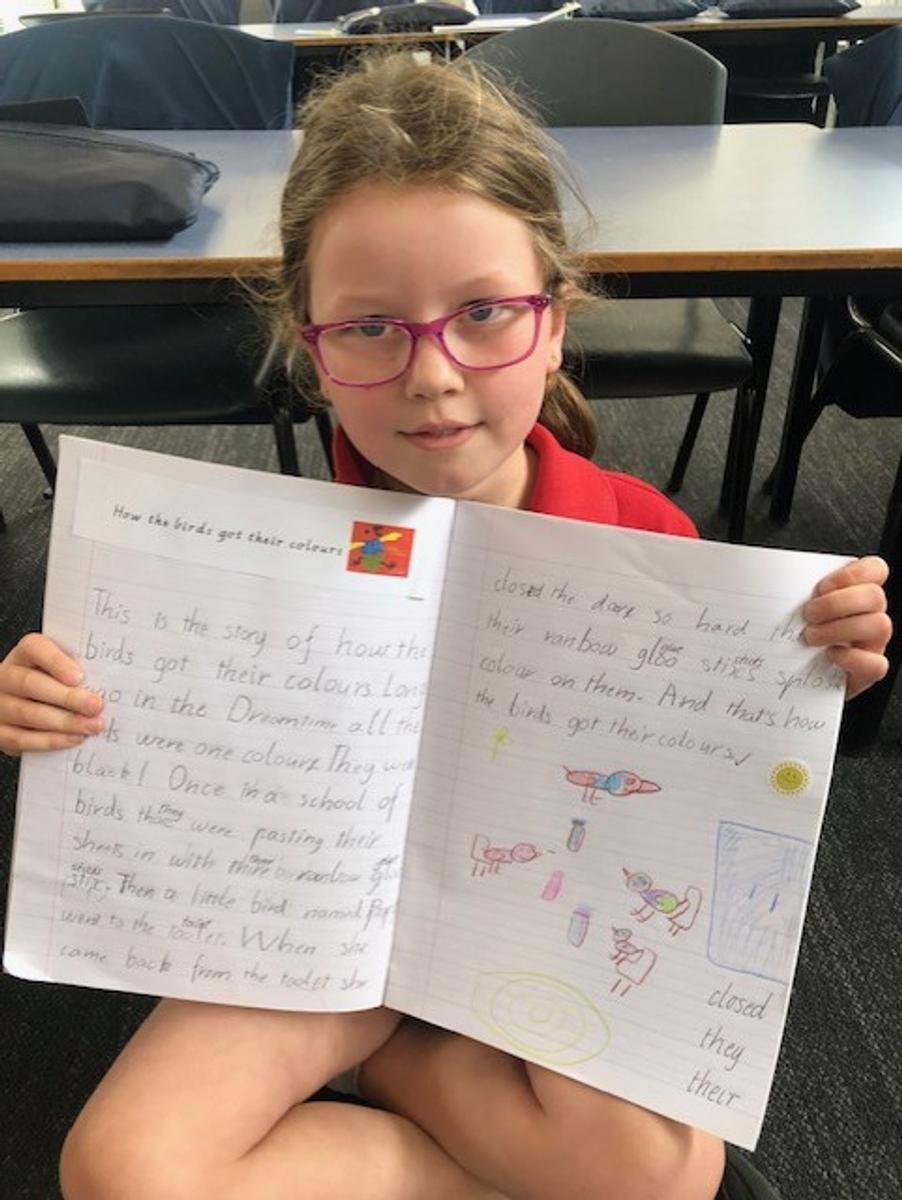 How the birds got their colours
This is the story of how the
birds got their colours. Long
ago in the Dreamtime all the
were one colour. They
black! Once in a school of
they
birds that were pasting their
sheets in with rainbow
sticks
stix. Then a little bird named
toilet
went to the toolet. When she
came back from the toolet she
closed the door so hard
glue sticks
their ranbow gloo stixs splash
colour on them. And that's how
the birds got their colours.
closed
they
their